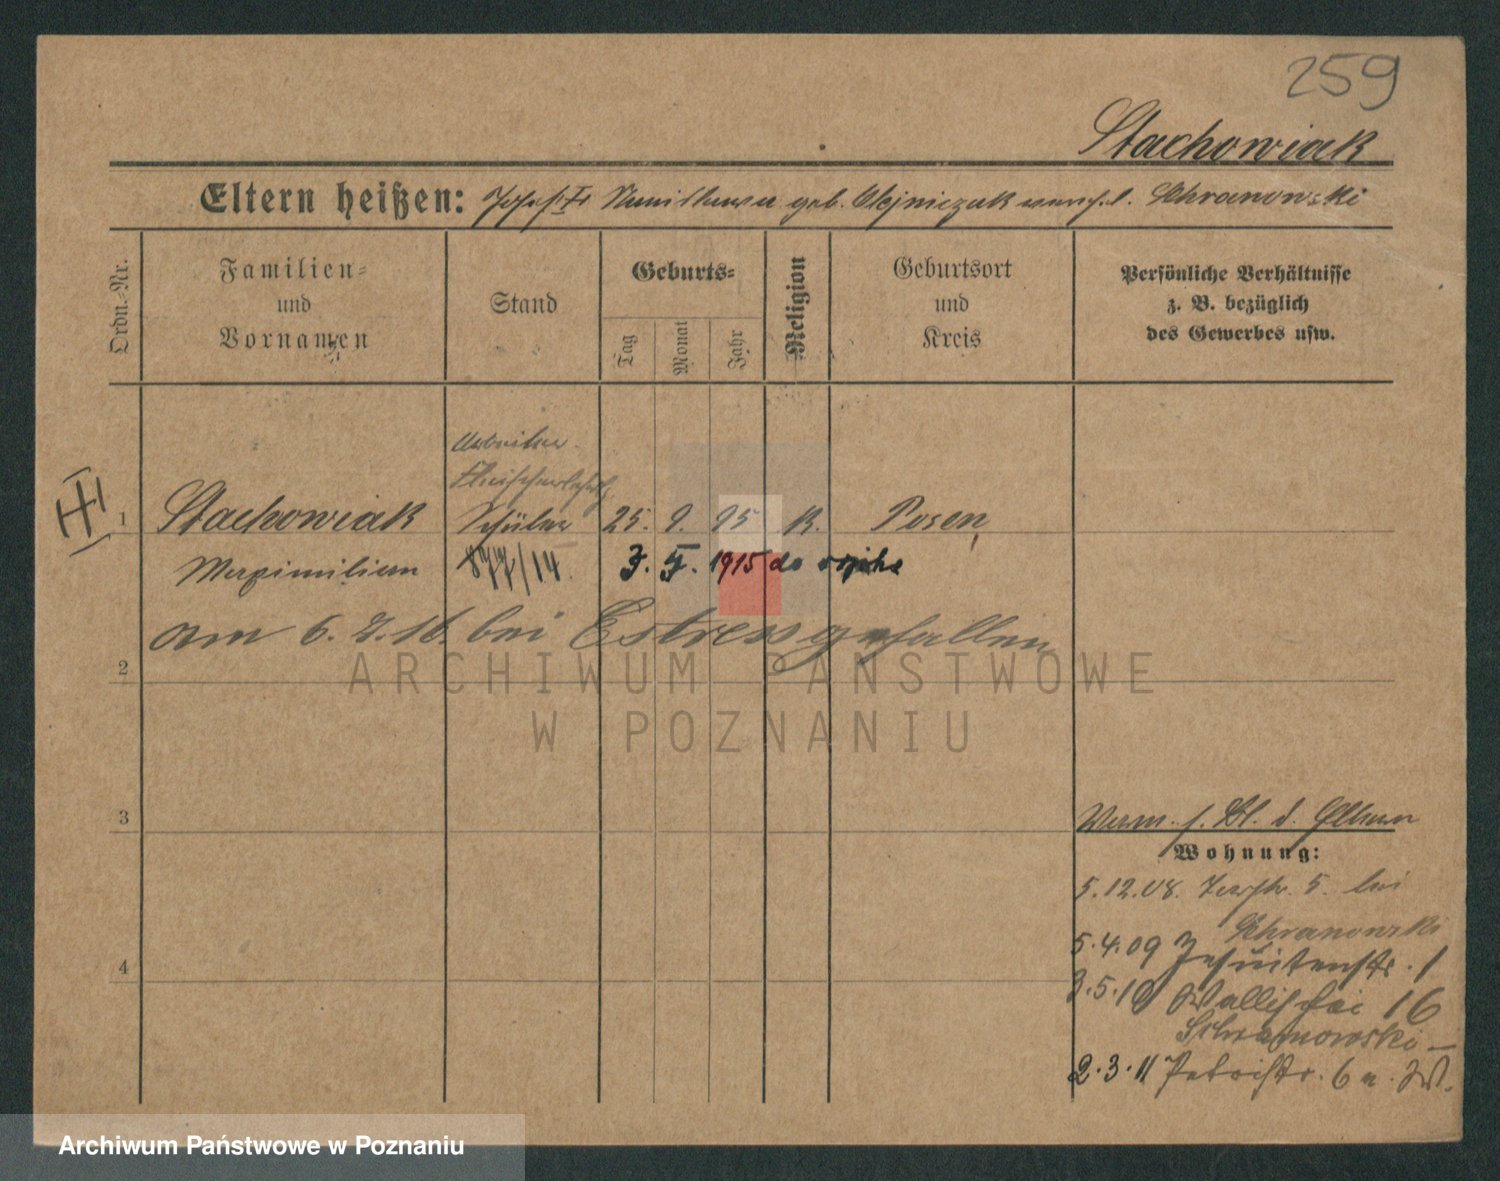 259
Stachowiak
Eltern heißen: Josef Stanislawa geb. Olejniczak Schranowski
Ordn.-Nr.
Familien-
und
Vornamen
Stand
Geburts-
Tag
Monat
Jahr
Religion
Geburtsort
und
Kreis
Persönliche Verhältnisse
z. B. bezüglich
des Gewerbes usw.
Arbeiter
Fleischerlehrl.
1 Stachowiak Schüler 25. 9. 95 K. Posen
Maximilian 877/14. 3. 5. 1915 do wojska
am 6. 7. 16. bei Estres gefallen
2
ARCHIWUM PAŃSTWOWE
W POZNANIU
3
Wohnung:
5.12.08. 5. bei
Schranowski
5.4.09 Jesuitenstr. 1
4
3.5.10 Wallischei 16
Schranowski
2.3.11 Petristr. 6 a. W.
Archiwum Państwowe w Poznaniu